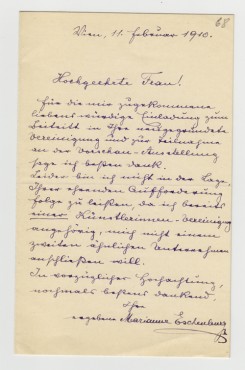 68
Wien, 11. februar 1910.
Hochgeehrte Frau!
für die mir zugekommene
liebenswürdige Einladung zum
Beitritt in Ihre neugegründete
Vereinigung und zur Teilnahme
an der Vorschau-Ausstellung
sage ich besten dank.
Leider bin ich nicht in der Lage,
Ihrer ehrenden Aufforderung
folge zu leisten, da ich bereits
einer Künstlerinnen-Vereinigung
angehörig, mich nicht einem
zweiten ähnlichen Unternehmen
anschließen will.
In vorzüglicher Hochachtung,
nochmals bestens dankend,
Ihre
ergebene Marianne Eschenburg